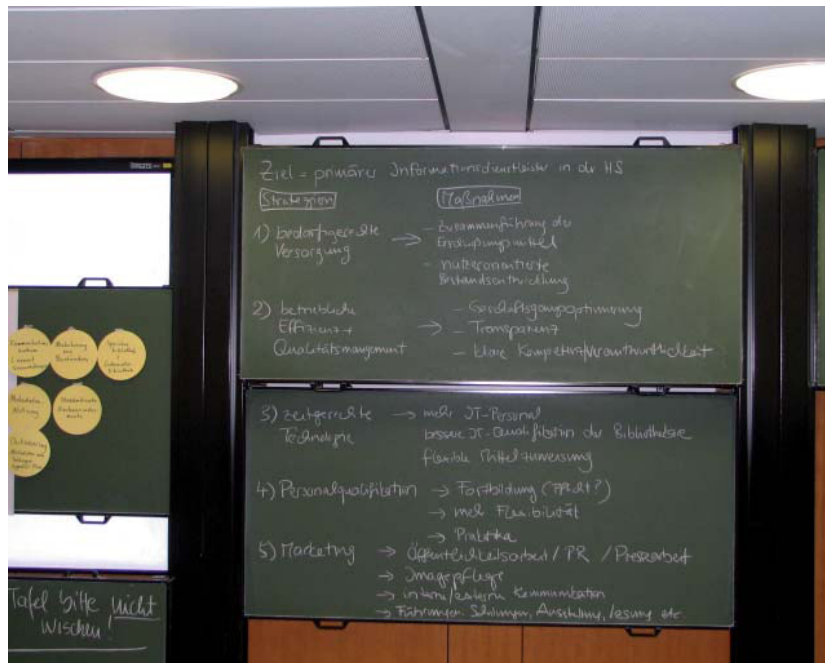 Ziel = primärer Informationsdienstleister in der HS
Strategien
Maßnahmen
1) bedarfsgerechte
Versorgung
→ - Zusammenführung der
Erschließungsmittel
- nutzerorientierte
Bestandsentwicklung
2) betriebliche
Effizienz +
Qualitätsmanagement
→ - Geschäftsgangoptimierung
- Transparenz
- klare Kompetenz/Verantwortlichkeit
3) zeitgerechte
Technologie
→ mehr IT-Personal
bessere IT-Qualifikation der Bibliothekare
flexible Mittelzuweisung
4) Personalqualifikation → Fortbildung (Pflicht?)
→ mehr Flexibilität
→ Praktika
5) Marketing → Öffentlichkeitsarbeit / PR / Pressearbeit
→ Imagepflege
→ intern/extern Kommunikation
→ Führungen, Schulungen, Ausstellung, Lesung etc.
Tafel bitte nicht
wischen!